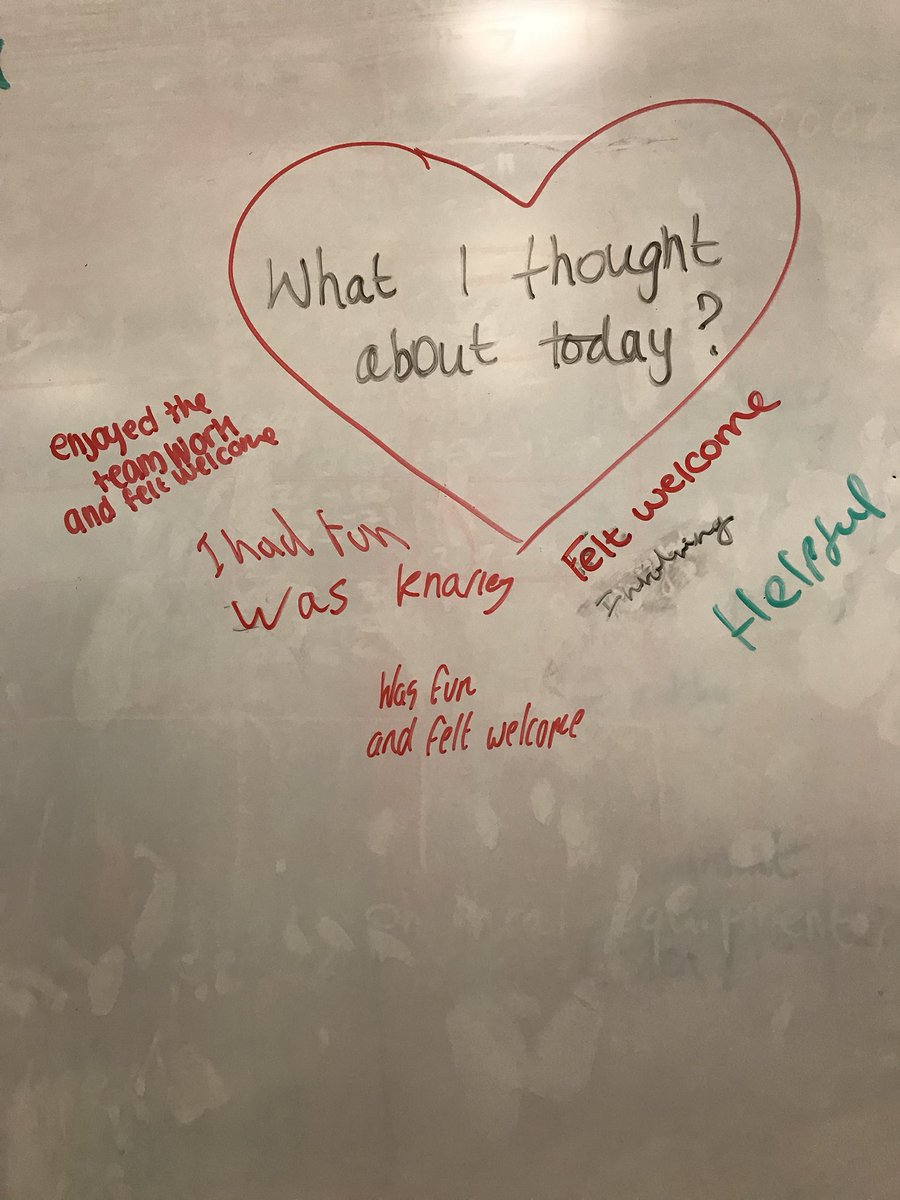 What I thought
about today?
enjoyed the
team work
and felt welcome
I had fun
Was
Felt welcome
Involving
Helpful
Was fun
and felt welcome
equipment